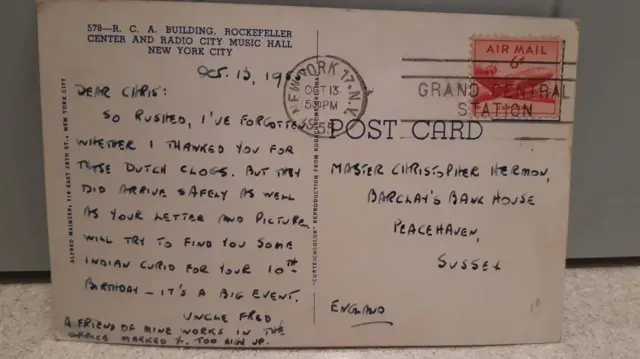 578—R. C. A. BUILDING, ROCKEFELLER
CENTER AND RADIO CITY MUSIC HALL
NEW YORK CITY
OCT. 13, 19
DEAR CHRIS:
SO RUSHED, I'VE FORGOTTEN
WHETHER I THANKED YOU FOR
THOSE DUTCH CLOGS. BUT THEY
DID ARRIVE SAFELY AS WELL
AS YOUR LETTER AND PICTURE.
WILL TRY TO FIND YOU SOME
INDIAN CURIO FOR YOUR 10TH
BIRTHDAY — IT'S A BIG EVENT.
UNCLE FRED
A FRIEND OF MINE WORKS IN THE
OFFICE MARKED X. TOO HIGH UP.
ALFRED MAINZER, 118 EAST 28TH ST., NEW YORK CITY
"CURTEICHCOLOR" REPRODUCTION FROM KODACHROME ORIGINAL
NEW YORK 17, N.Y.
OCT 13
5 PM
1955
AIR MAIL
6¢
GRAND CENTRAL
STATION
POST CARD
MASTER CHRISTOPHER HERMON,
BARCLAY'S BANK HOUSE
PEACEHAVEN,
SUSSEX
ENGLAND